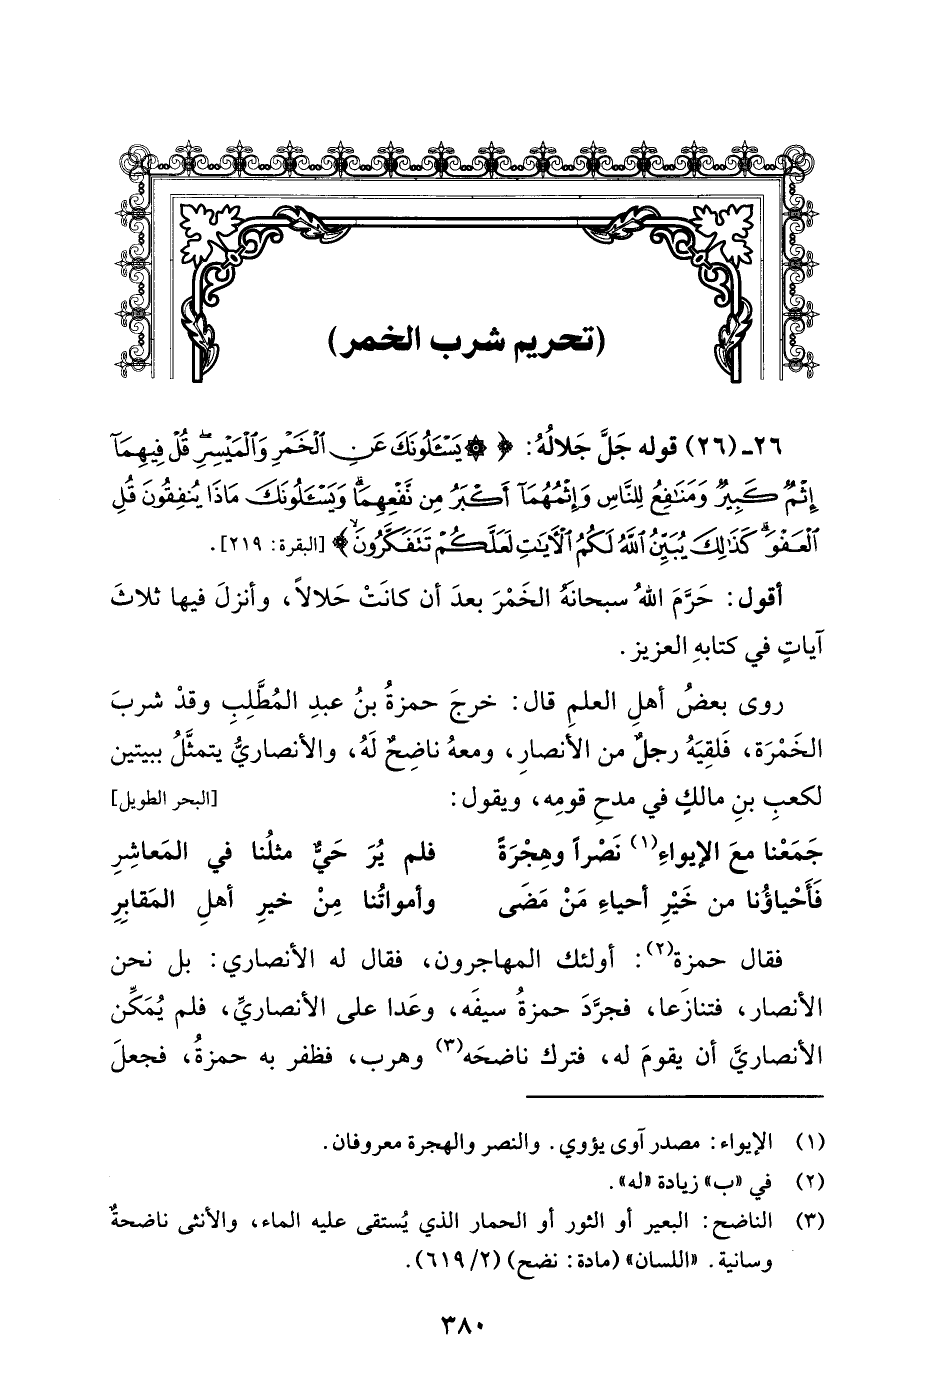 (تحريم شرب الخمر)
٢٦ـ (٢٦) قوله جَلَّ جَلالُهُ: ﴿ ۞ يَسْـَٔلُونَكَ عَنِ ٱلْخَمْرِ وَٱلْمَيْسِرِ ۖ قُلْ فِيهِمَآ
إِثْمٌ كَبِيرٌ وَمَنَٰفِعُ لِلنَّاسِ وَإِثْمُهُمَآ أَكْبَرُ مِن نَّفْعِهِمَا ۗ وَيَسْـَٔلُونَكَ مَاذَا يُنفِقُونَ قُلِ
ٱلْعَفْوَ ۗ كَذَٰلِكَ يُبَيِّنُ ٱللَّهُ لَكُمُ ٱلْآيَٰتِ لَعَلَّكُمْ تَتَفَكَّرُونَ ۙ ﴾ [البقرة: ٢١٩].
أقول: حَرَّمَ اللهُ سبحانَهُ الخَمْرَ بعدَ أن كانَتْ حَلالاً، وأنزلَ فيها ثلاثَ
آياتٍ في كتابهِ العزيز.
روى بعضُ أهلِ العلمِ قال: خرجَ حمزةُ بنُ عبدِ المُطَّلِبِ وقدْ شربَ
الخَمْرَة، فَلقِيَهُ رجلٌ من الأنصارِ، ومعهُ ناضِحٌ لَهُ، والأنصاريُّ يتمثَّلُ ببيتين
لكعبِ بنِ مالكٍ في مدحِ قومِه، ويقول: [البحر الطويل]
جَمَعْنا معَ الإيواءِ(١) نَصْراً وهِجْرَةً فلم يُرَ حَيٌّ مثلُنا في المَعاشرِ
فَأَحْياؤُنا من خَيْرِ أحياءِ مَنْ مَضَى وأمواتُنا مِنْ خيرِ أهلِ المَقابِرِ
فقال حمزة(٢): أولئك المهاجرون، فقال له الأنصاري: بل نحن
الأنصار، فتنازَعا، فجرَّدَ حمزةُ سيفَه، وعَدا على الأنصاريِّ، فلم يُمَكِّن
الأنصاريَّ أن يقومَ له، فترك ناضحَه(٣) وهرب، فظفر به حمزةُ، فجعلَ
(١) الإيواء: مصدر آوى يؤوي. والنصر والهجرة معروفان.
(٢) في «ب» زيادة «له».
(٣) الناضح: البعير أو الثور أو الحمار الذي يُستقى عليه الماء، والأنثى ناضحةٌ
وسانية. «اللسان» (مادة: نضح) (٢/ ٦١٩).
٣٨٠